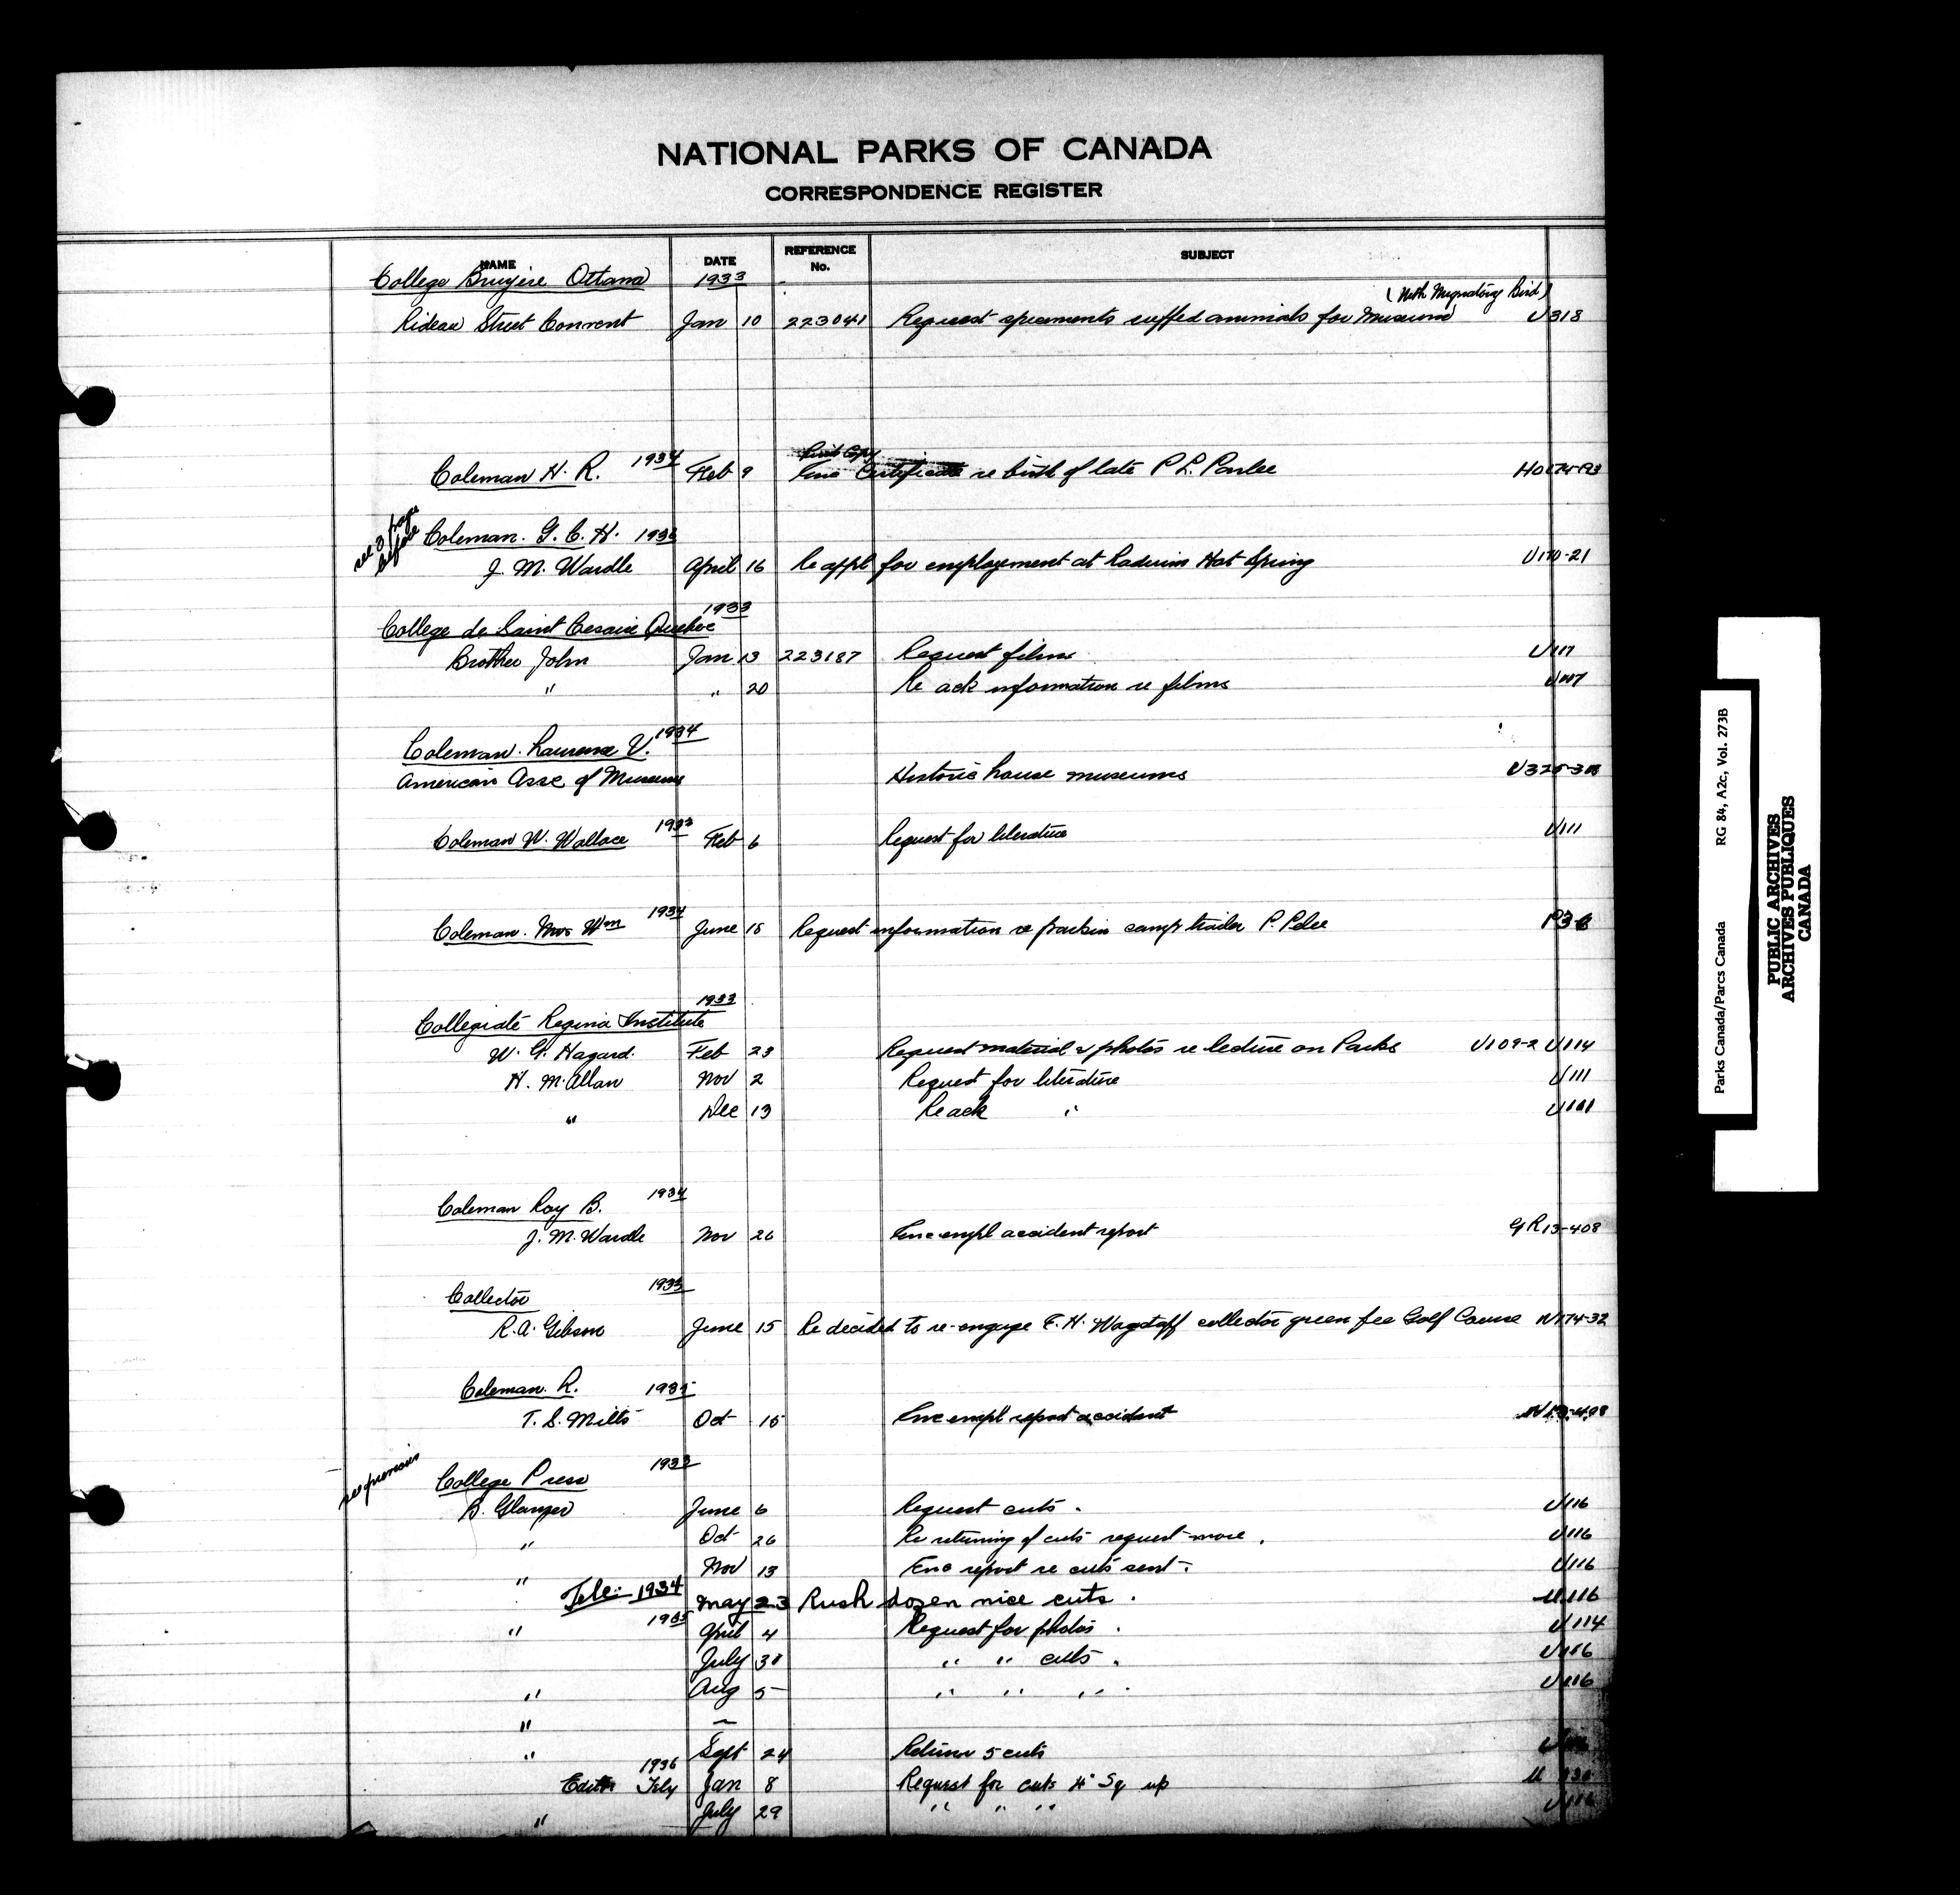 NATIONAL PARKS OF CANADA
CORRESPONDENCE REGISTER
NAME DATE REFERENCE No. SUBJECT
College Bruyère Ottawa 1933
(With Migratory Bird)
Rideau Street Convent Jan 10 223041 Request for Museum U318
Coleman H. R. 1934 Feb 9 Certificate re birth of late P L. Parlee
see 3 page before
Coleman. G. C. H.
J. M. Wardle April 16 Re appl for employment at Radium Hot Spring U170-21
College de Saint Cesaire Quebec 1933
Brother John Jan 13 223187 Request films U117
" " 20 Re ack information re films
Coleman. Laurence V. 1934
American Assc of Museums Historic house museums
Coleman W. Wallace 1933 Feb 6 Request for literature U111
Coleman. Mrs Wm 1934 June 15 Request information re camp trailer P. Pelee
Collegiate Regina Institute 1933
W. G. Hagard. Feb 23 Request material & photos re lecture on Parks U109-2 U114
H. M. Allan Nov 2 Request for literature U111
" Dec 13 Re ack "
Coleman Roy B. 1934
J. M. Wardle Nov 26 Enc empl accident report GR13-408
Collector 1933
R. A. Gibson June 15 Re decided to re-engage E. H. Wagstaff collector green fee Golf Course
Coleman. R. 1935
T. S. Mills Oct 15 Enc empl report accident
see previous
College Press 1933
B. June 6 Request cuts. U116
" Oct 26 Re returning of cuts request more. U116
" Nov 13 Enc report re cuts sent. U116
Tele: 1934 May 23 Rush dozen nice cuts. U116
" 1935 April 4 Request for photos. U114
July " " cuts. U116
" Aug 5 " " " U116
"
" Sept 24 Return 5 cuts
1936
Editor Jan 8 Request for cuts 4" Sq up
" July 29 " " " U116
Parks Canada/Parcs Canada RG 84, A2c, Vol. 273B
PUBLIC ARCHIVES
ARCHIVES PUBLIQUES
CANADA